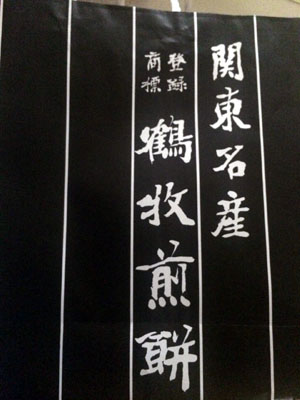 関東名産
登録
商標
鶴牧煎餅